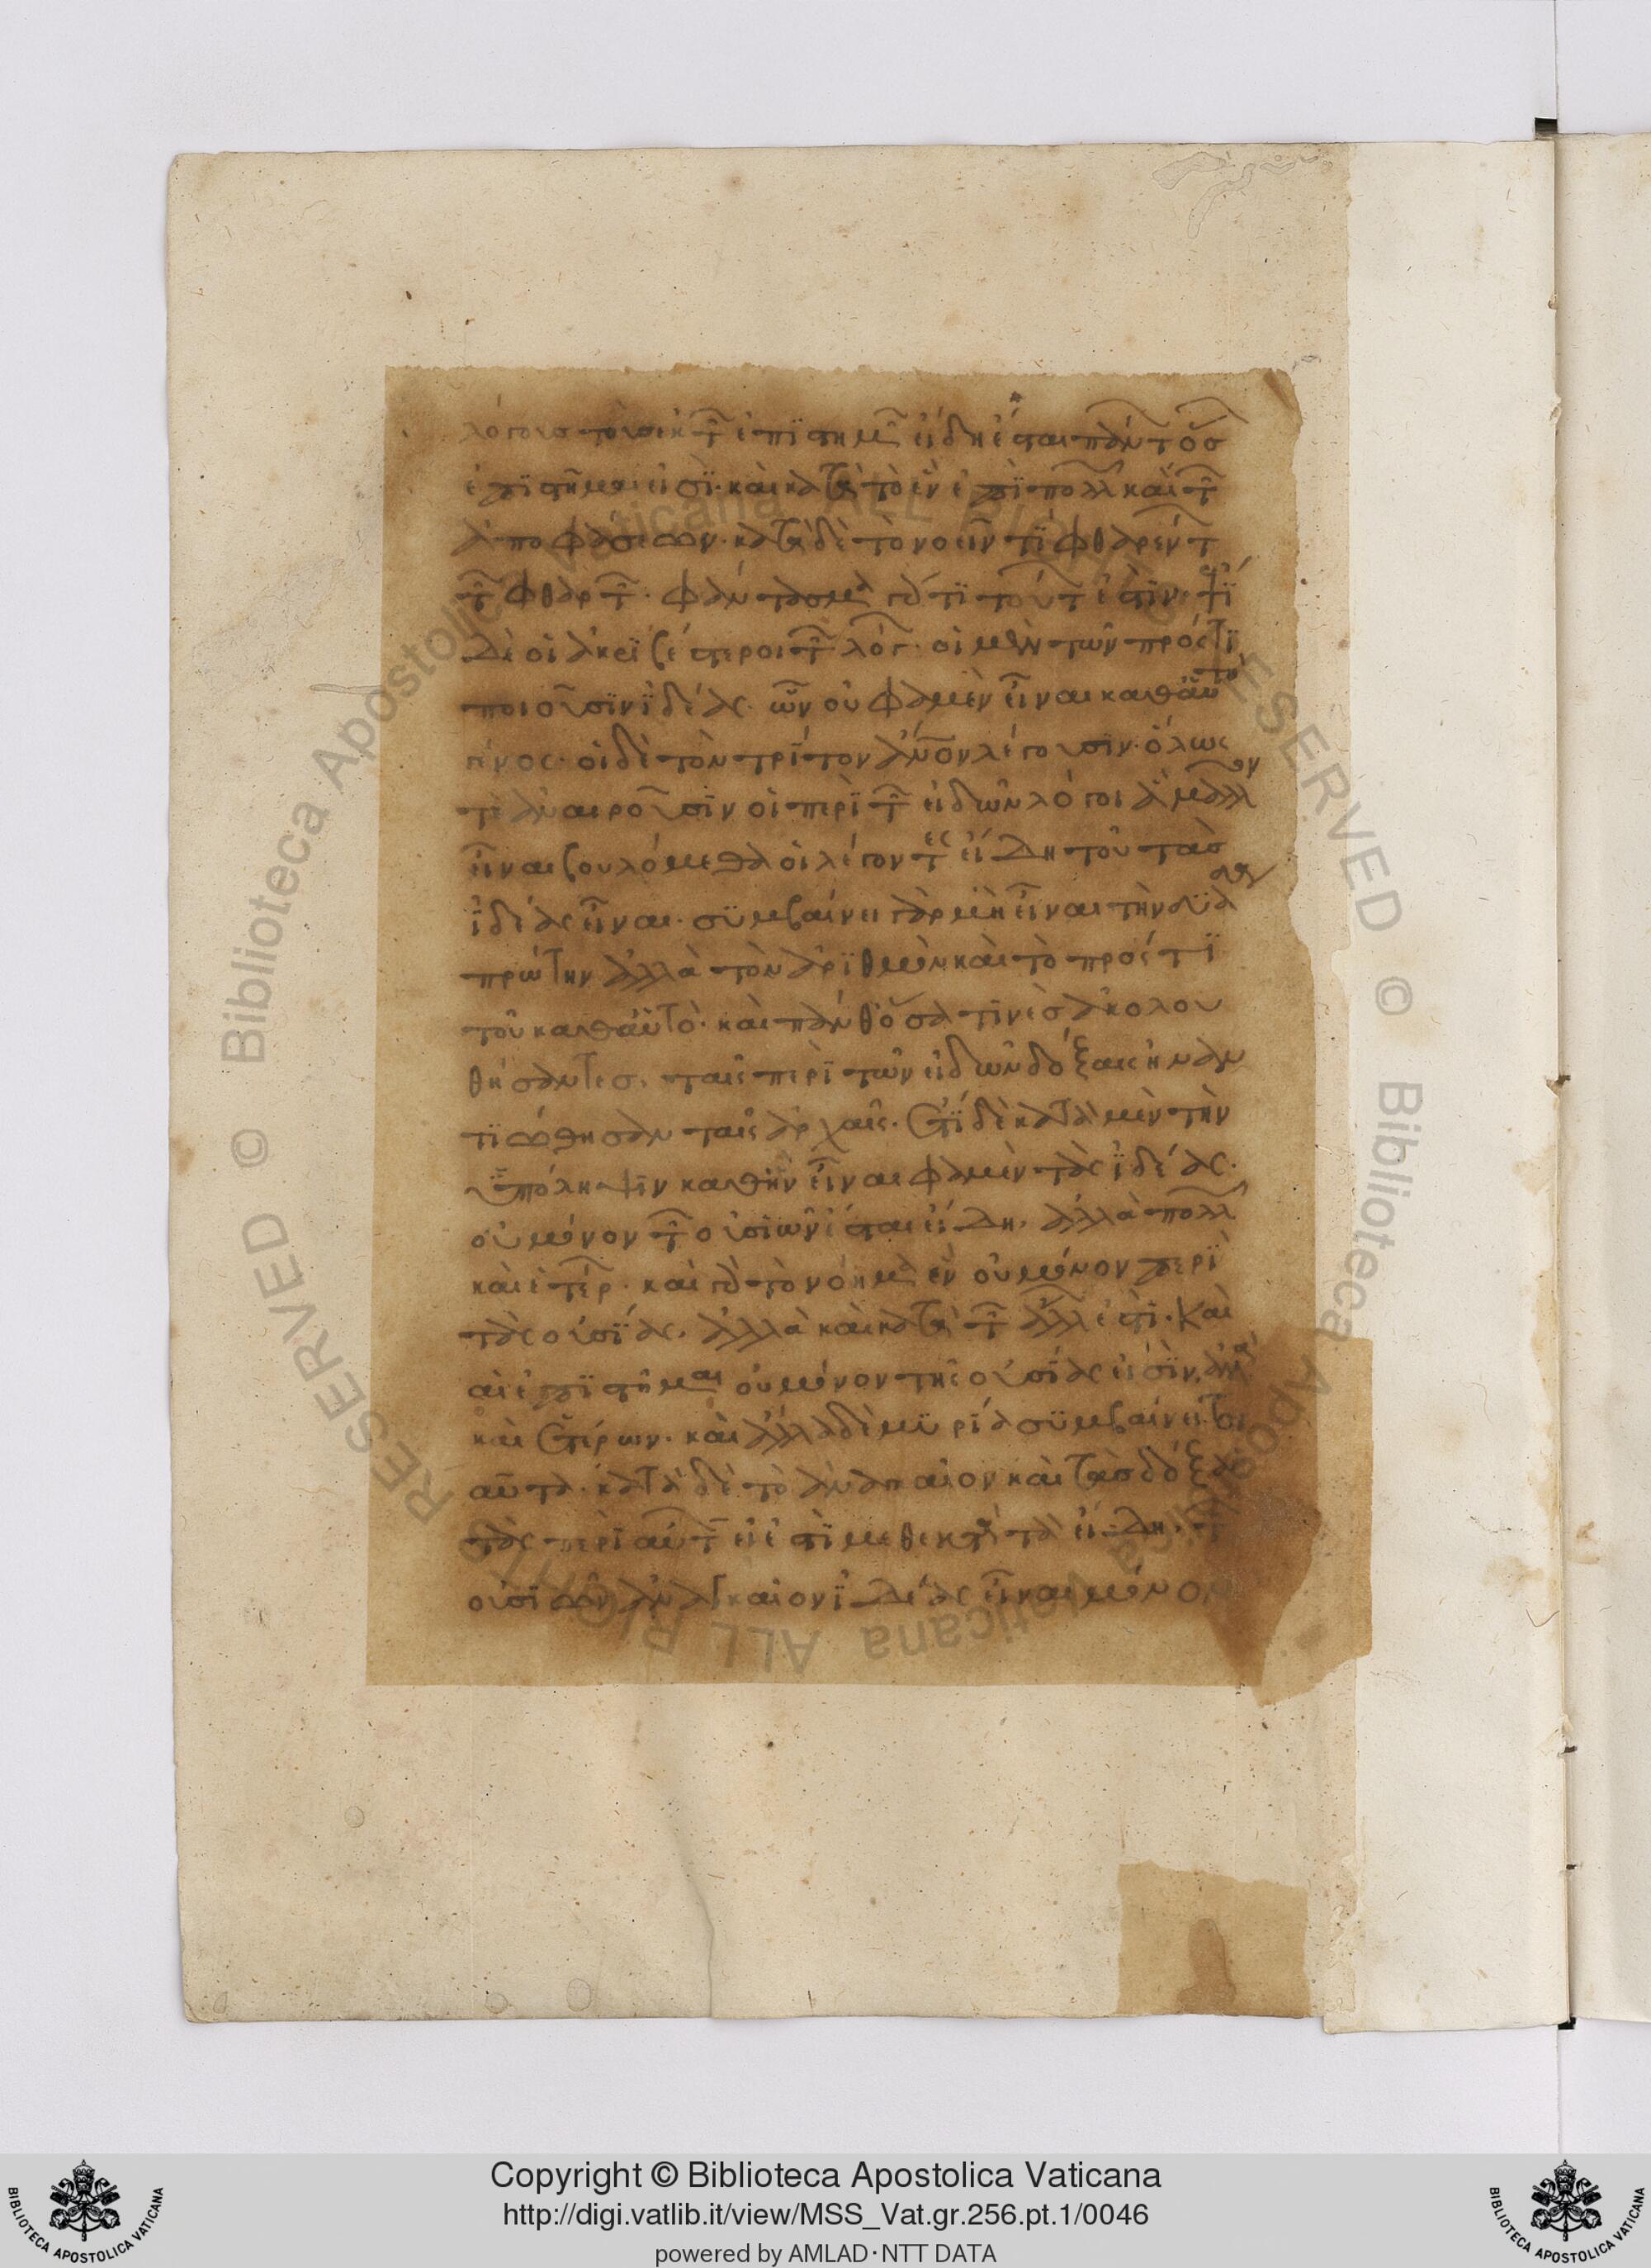 λόγους τοὺς ἐκ τῶν ἐπιστημῶν εἴδη ἔσται πάντων ὅσων
ἐπιστῆμαι εἰσί· καὶ κατὰ τὸ ἓν ἐπὶ πολλῶν καὶ τῶν
ἀποφάσεων· κατὰ δὲ τὸ νοεῖν τι φθαρέντος
τῶν φθαρτῶν· φάντασμα γάρ τι τούτων ἐστίν· ἔτι
δὲ οἱ ἀκριβέστεροι τῶν λόγων· οἱ μὲν τῶν πρός τι
ποιοῦσιν ἰδέας· ὧν οὔ φαμεν εἶναι καθ' αὑτὸ
γένος· οἱ δὲ τὸν τρίτον ἄνθρωπον λέγουσιν· ὅλως
τε ἀναιροῦσιν οἱ περὶ τῶν εἰδῶν λόγοι ἃ μᾶλλον
εἶναι βουλόμεθα οἱ λέγοντες εἴδη τοῦ τὰς
ἰδέας εἶναι· συμβαίνει γὰρ μὴ εἶναι τὴν δυάδα
πρώτην ἀλλὰ τὸν ἀριθμὸν καὶ τὸ πρός τι
τοῦ καθ' αὑτό· καὶ πάνθ' ὅσα τινὲς ἀκολου
θήσαντες ταῖς περὶ τῶν εἰδῶν δόξαις ἠναν
τιώθησαν ταῖς ἀρχαῖς. ἔτι δὲ κατὰ μὲν τὴν
ὑπόληψιν καθ' ἣν εἶναι φαμὲν τὰς ἰδέας·
οὐ μόνον τῶν οὐσιῶν ἔσται εἴδη, ἀλλὰ πολλῶν
καὶ ἑτέρων· καὶ γὰρ τὸ νόημα ἓν οὐ μόνον περὶ
τὰς οὐσίας, ἀλλὰ καὶ κατὰ τῶν ἄλλων ἐστί· καὶ
αἱ ἐπιστῆμαι οὐ μόνον τῆς οὐσίας εἰσίν, ἀλλὰ
καὶ ἑτέρων· καὶ ἄλλα δὲ μυρία συμβαίνει τοι
αῦτα· κατὰ δὲ τὸ ἀναγκαῖον καὶ τὰς δόξας
τὰς περὶ αὐτῶν εἰ ἔστι μεθεκτὰ τὰ εἴδη, τῶν
οὐσιῶν ἀναγκαῖον ἰδέας εἶναι μόνον
Copyright © Biblioteca Apostolica Vaticana
http://digi.vatlib.it/view/MSS_Vat.gr.256.pt.1/0046
powered by AMLAD·NTT DATA